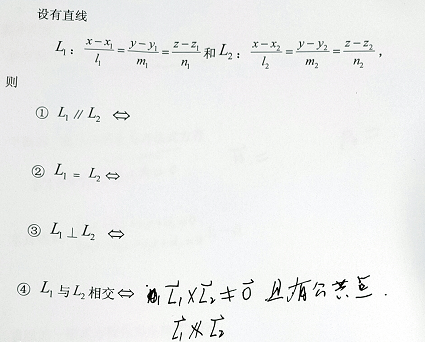 设有直线
L₁：(x−x₁)/l₁ = (y−y₁)/m₁ = (z−z₁)/n₁ 和 L₂：(x−x₂)/l₂ = (y−y₂)/m₂ = (z−z₂)/n₂，
则
① L₁ // L₂ ⇔
② L₁ = L₂ ⇔
③ L₁ ⊥ L₂ ⇔
④ L₁与L₂相交⇔ L⃗₁×L⃗₂≠0⃗ 且有公共点.
L⃗₁ ∦ L⃗₂